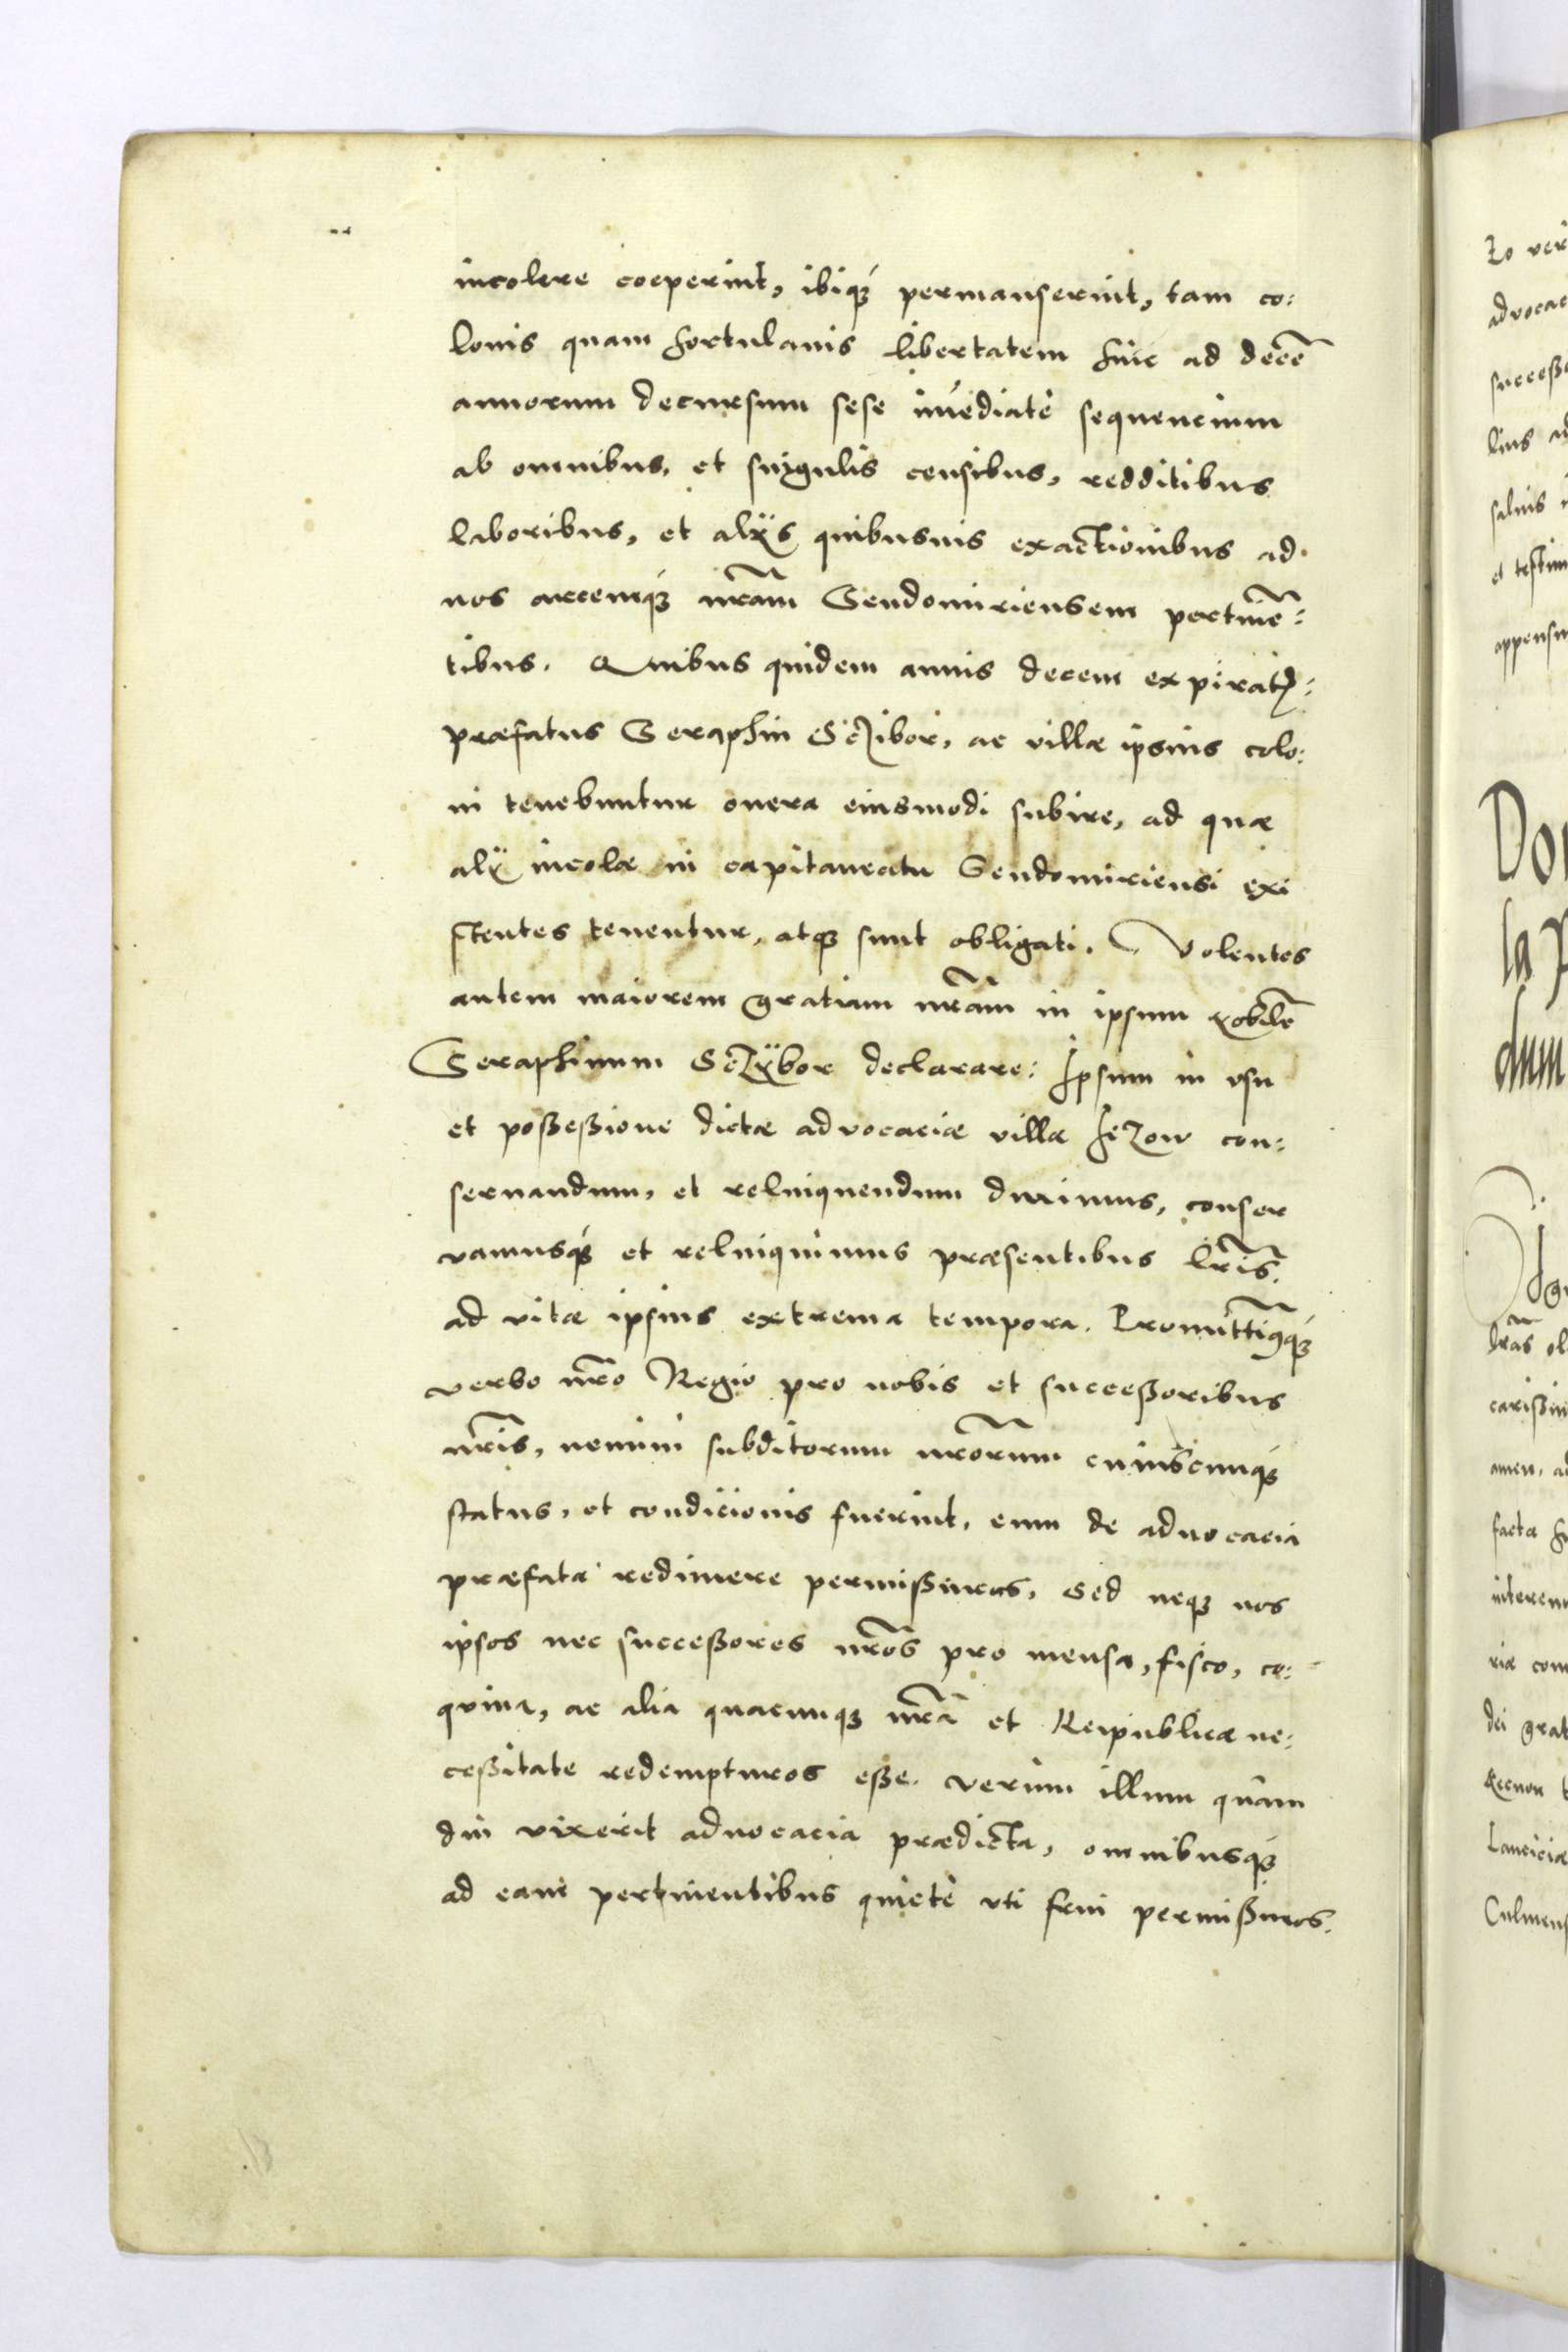 incolere coeperint, ibiq́ꝫ permanserint, tam co:
lonis quam hortulanis libertatem hinc ad decē
annorum decursum sese im̄ediatè sequencium
ab omnibus, et singulis censibus, redditibus
laboribus, et alÿs quibusuis exactionibus ad
nos arcemq́ꝫ nr̃am Sendomiriensem pertinē:
tibus. Quibus quidem annis decem expiratꝭ:
præfatus Seraphin Sczibor, ac villæ ipsius colo:
ni tenebuntur onera eiusmodi subire, ad quæ
alÿ incolæ in capitaneatu Sendomiriensi exi
stentes tenentur, atqꝫ sunt obligati. Volentes
autem maiorem gratiam nr̃am in ipsum nobilē
Seraphinum Sczÿbor declarare: Ipsum in vsu
et poßeßione dictæ advocaciæ villæ Jezow con:
seruandum, et relinquendum duximus, conser
vamusq́ꝫ et relinquimus præsentibus lr̃is.
ad vitæ ipsius extrema tempora. Promittimꝰq́ꝫ
verbo nr̃o Regio pro nobis et succeßoribus
nr̃is, nemini subditorum nr̃orum cuiuscunq́ꝫ
status, et condicionis fuerint, eum de aduocacia
præfata redimere permißuros, sed neqꝫ nos
ipsos nec succeßores nr̃os pro mensa, fisco, co:
quina, ac alia quacunqꝫ nr̃a et Reipublicæ ne:
ceßitate redempturos eße. Verum illum quam
diu vixerit aduocacia prædicta, omnibusq́ꝫ
ad eam pertinentibus quietè vti frui permißuros.